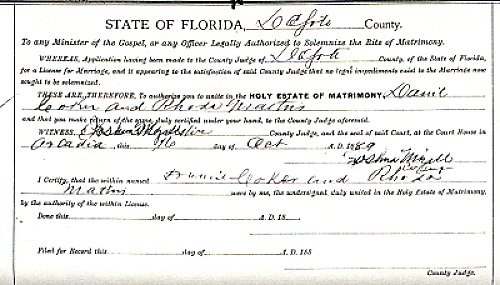 STATE OF FLORIDA, DeSoto County.
To any Minister of the Gospel, or any Officer Legally Authorized to Solemnize the Rite of Matrimony.
WHEREAS, Application having been made to the County Judge of DeSoto County, of the State of Florida,
for a License for Marriage, and it appearing to the satisfaction of said County Judge that no legal impediments exist to the Marriage now
sought to be solemnized.
THESE ARE, THEREFORE, To authorize you to unite in the HOLY ESTATE OF MATRIMONY,
Coker and Rhoda Martin
and that you make return of the same, duly certified under your hand, to the County Judge aforesaid.
WITNESS, County Judge, and the seal of said Court, at the Court House in
Arcadia this day of Oct A. D. 1889
I Certify, that the within named Coker and Rhoda
Martin were by me, the undersigned, duly united in the Holy Estate of Matrimony,
by the authority of the within License.
Done this day of A. D. 18
Filed for Record this day of A. D. 188
County Judge.